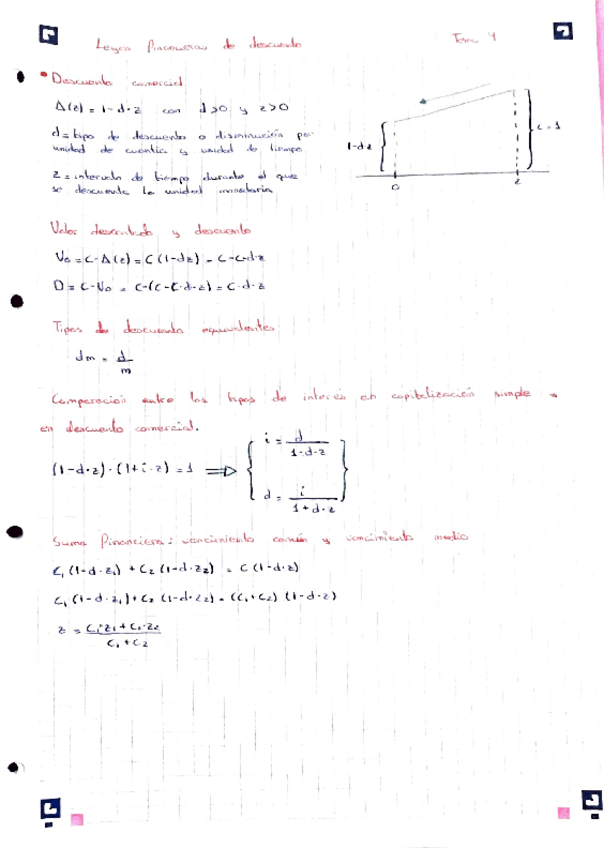 Leyes Financieras de descuento
Tema 4
• Descuento comercial
A(z) = 1 - d · z con d>0 y z>0
d = tipo de descuento o disminución por
unidad de cuantía y unidad de tiempo
z = intervalo de tiempo durante el que
se descuenta la unidad monetaria
1-d·z
c = 1
0
z
Valor descontado y descuento
V₀ = C · A(z) = C (1-dz) = C - C·d·z
D = C - V₀ = C-(C-C·d·z) = C·d·z
Tipos de descuento equivalentes
dm = d/m
Comparación entre los tipos de interés en capitalización simple y
en descuento comercial.
(1-d·z) · (1+i·z) = 1 ⇒ { i = d/(1-d·z)
d = i/(1+d·z) }
Suma Financiera: vencimiento común y vencimiento medio
C₁(1-d·z₁) + C₂(1-d·z₂) = C(1-d·z)
C₁(1-d·z₁) + C₂(1-d·z₂) = (C₁+C₂) (1-d·z)
z = (C₁·z₁ + C₂·z₂)/(C₁+C₂)